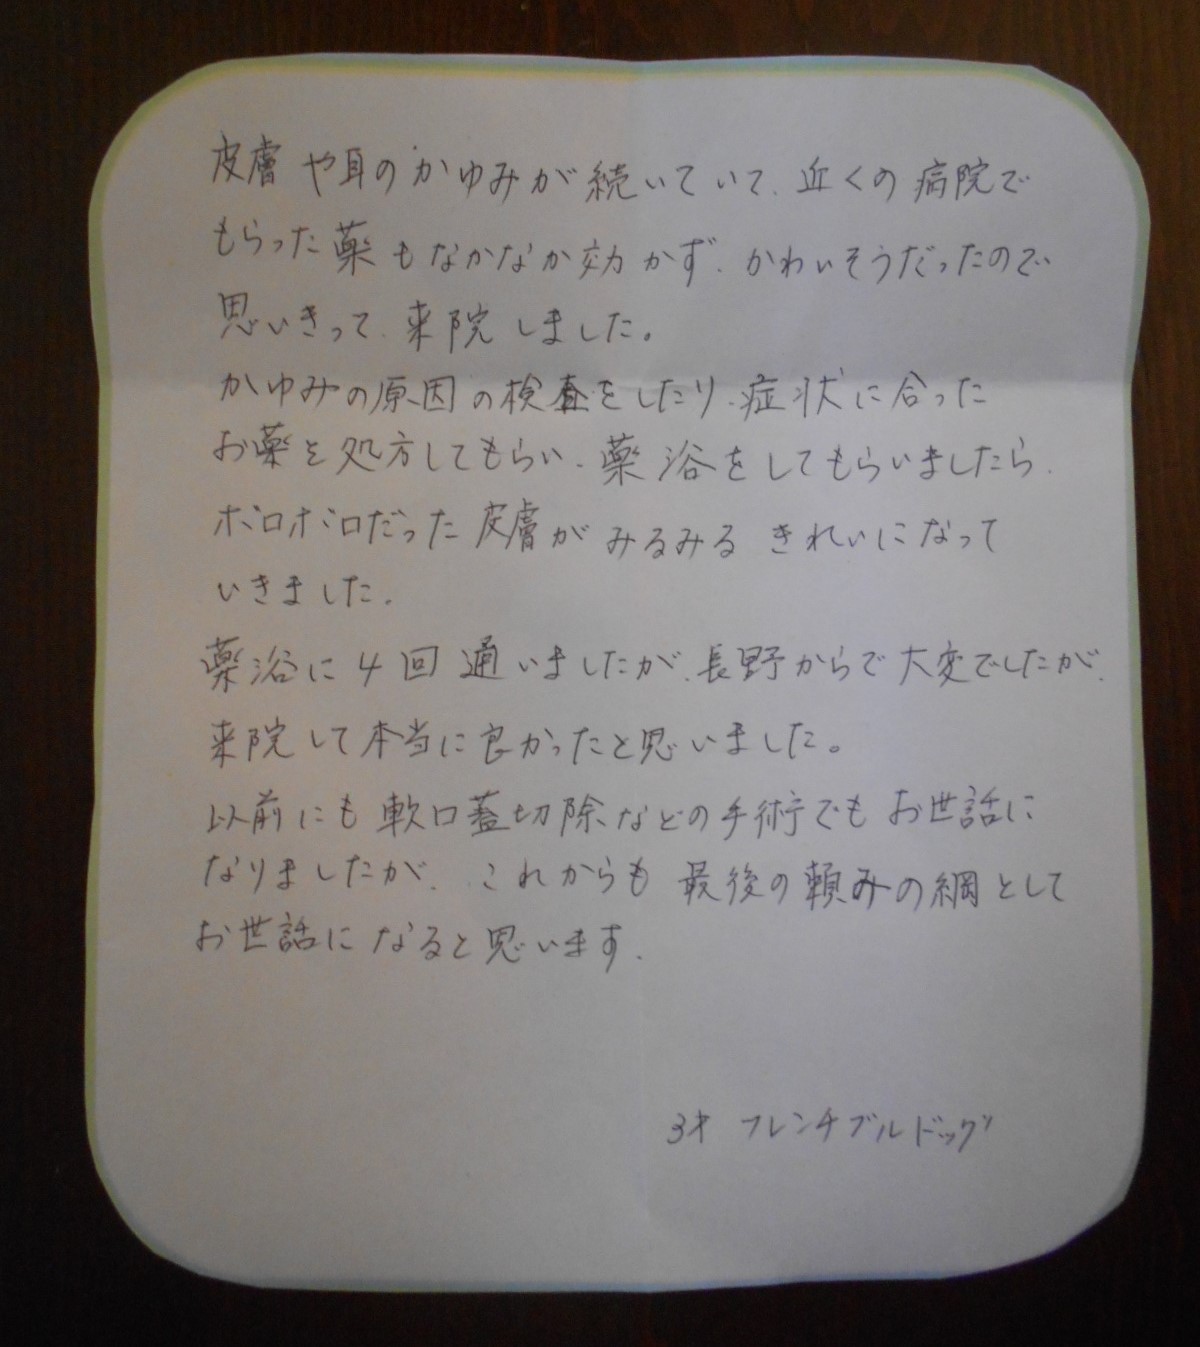 皮膚や耳のかゆみが続いていて、近くの病院で
もらった薬もなかなか効かず、かわいそうだったので
思いきって、来院しました。
かゆみの原因の検査をしたり、症状に合った
お薬を処方してもらい、薬浴をしてもらいましたら、
ボロボロだった皮膚がみるみるきれいになって
いきました。
薬浴に4回通いましたが、長野からで大変でしたが、
来院して本当に良かったと思いました。
以前にも軟口蓋切除などの手術でもお世話に
なりましたが、これからも最後の頼みの綱として
お世話になると思います。
3才 フレンチブルドッグ